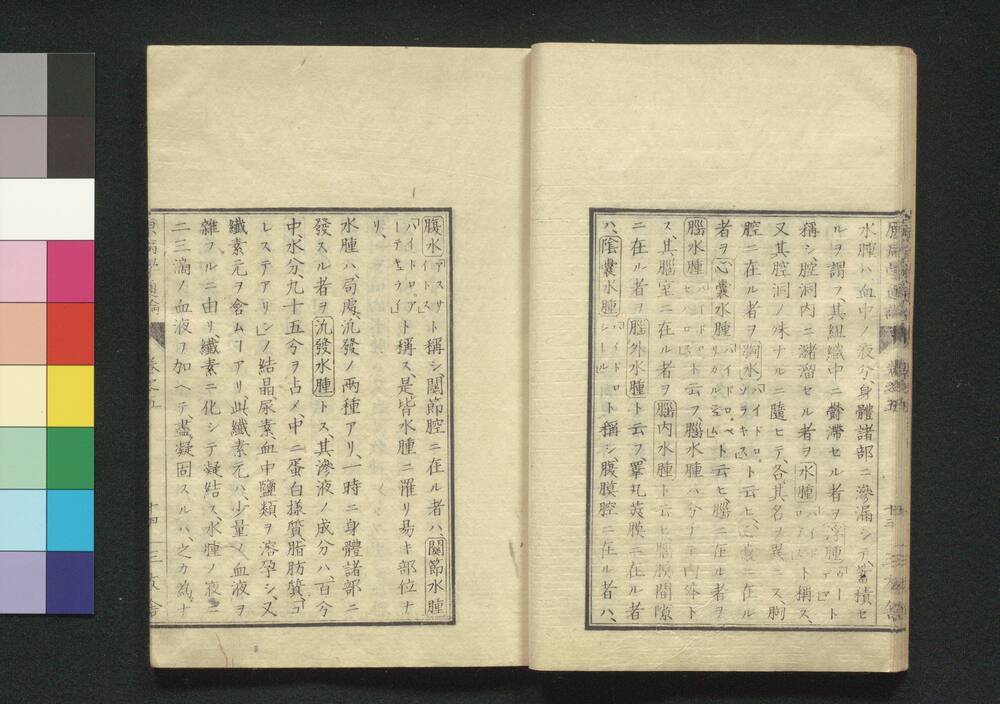 水腫ハ血中ノ液分、身體諸部ニ滲漏シテ、蓄積セ
ルヲ謂フ、其組織中ニ鬱滯セル者ヲ浮腫ト
稱シ、腔洞内ニ瀦溜セル者ヲ水腫ト稱ス、
又其腔洞ノ殊ナルニ隨ヒテ、各其名ヲ異ニス、胸
腔ニ在ル者ヲ胸水ハイドロ・ソラキスト云ヒ、心囊ニ在ル
者ヲ心囊水腫ハイドロ・ペリカルヂユムト云ヒ、腦ニ在ル者ヲ
腦水腫ト云フ、腦水腫ハ
ス、其腦室ニ在ル者ヲ腦内水腫ト云ヒ、腦膜間隙
ニ在ル者ヲ腦外水腫ト云フ、睪丸莢膜ニ在ル者
ハ、陰囊水腫ハイドロシールト稱シ、腹膜腔ニ在ル者ハ、
腹水アスサイトスト稱シ、關節腔ニ在ル者ハ、關節水腫
ハイドロ・アト稱ス、是皆水腫ニ罹リ易キ部位ナ
リ、
水腫ハ、局處、汎發ノ兩種アリ、一時ニ身體諸部ニ
發スル者ヲ汎發水腫トス、其滲液ノ成分ハ、百分
中、水分、九十五分ヲ占メ、中ニ蛋白樣質、脂肪質、コ
レステアリンノ結晶、尿素、血中鹽類ヲ溶孕シ、又
纎素元ヲ含ムヿアリ、此纎素元ハ、少量ノ血液ヲ
雜フルニ由リ、纎素ニ化シテ凝結ス、水腫ノ液ニ
二三滴ノ血液ヲ加ヘテ、盡ク凝固スルハ、之カ爲ナ
卷之五
十四
三友舍